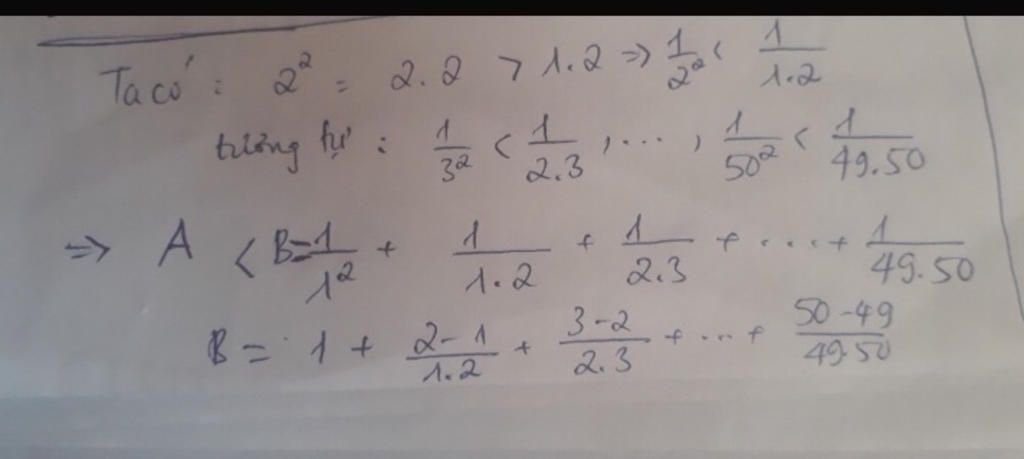 Ta có : 2² = 2.2 > 1.2 => 1/2² < 1/1.2
tương tự : 1/3² < 1/2.3 , ... , 1/50² < 1/49.50
=> A < B = 1/1² + 1/1.2 + 1/2.3 + .... + 1/49.50
B = 1 + 2-1/1.2 + 3-2/2.3 + ... + 50-49/49.50